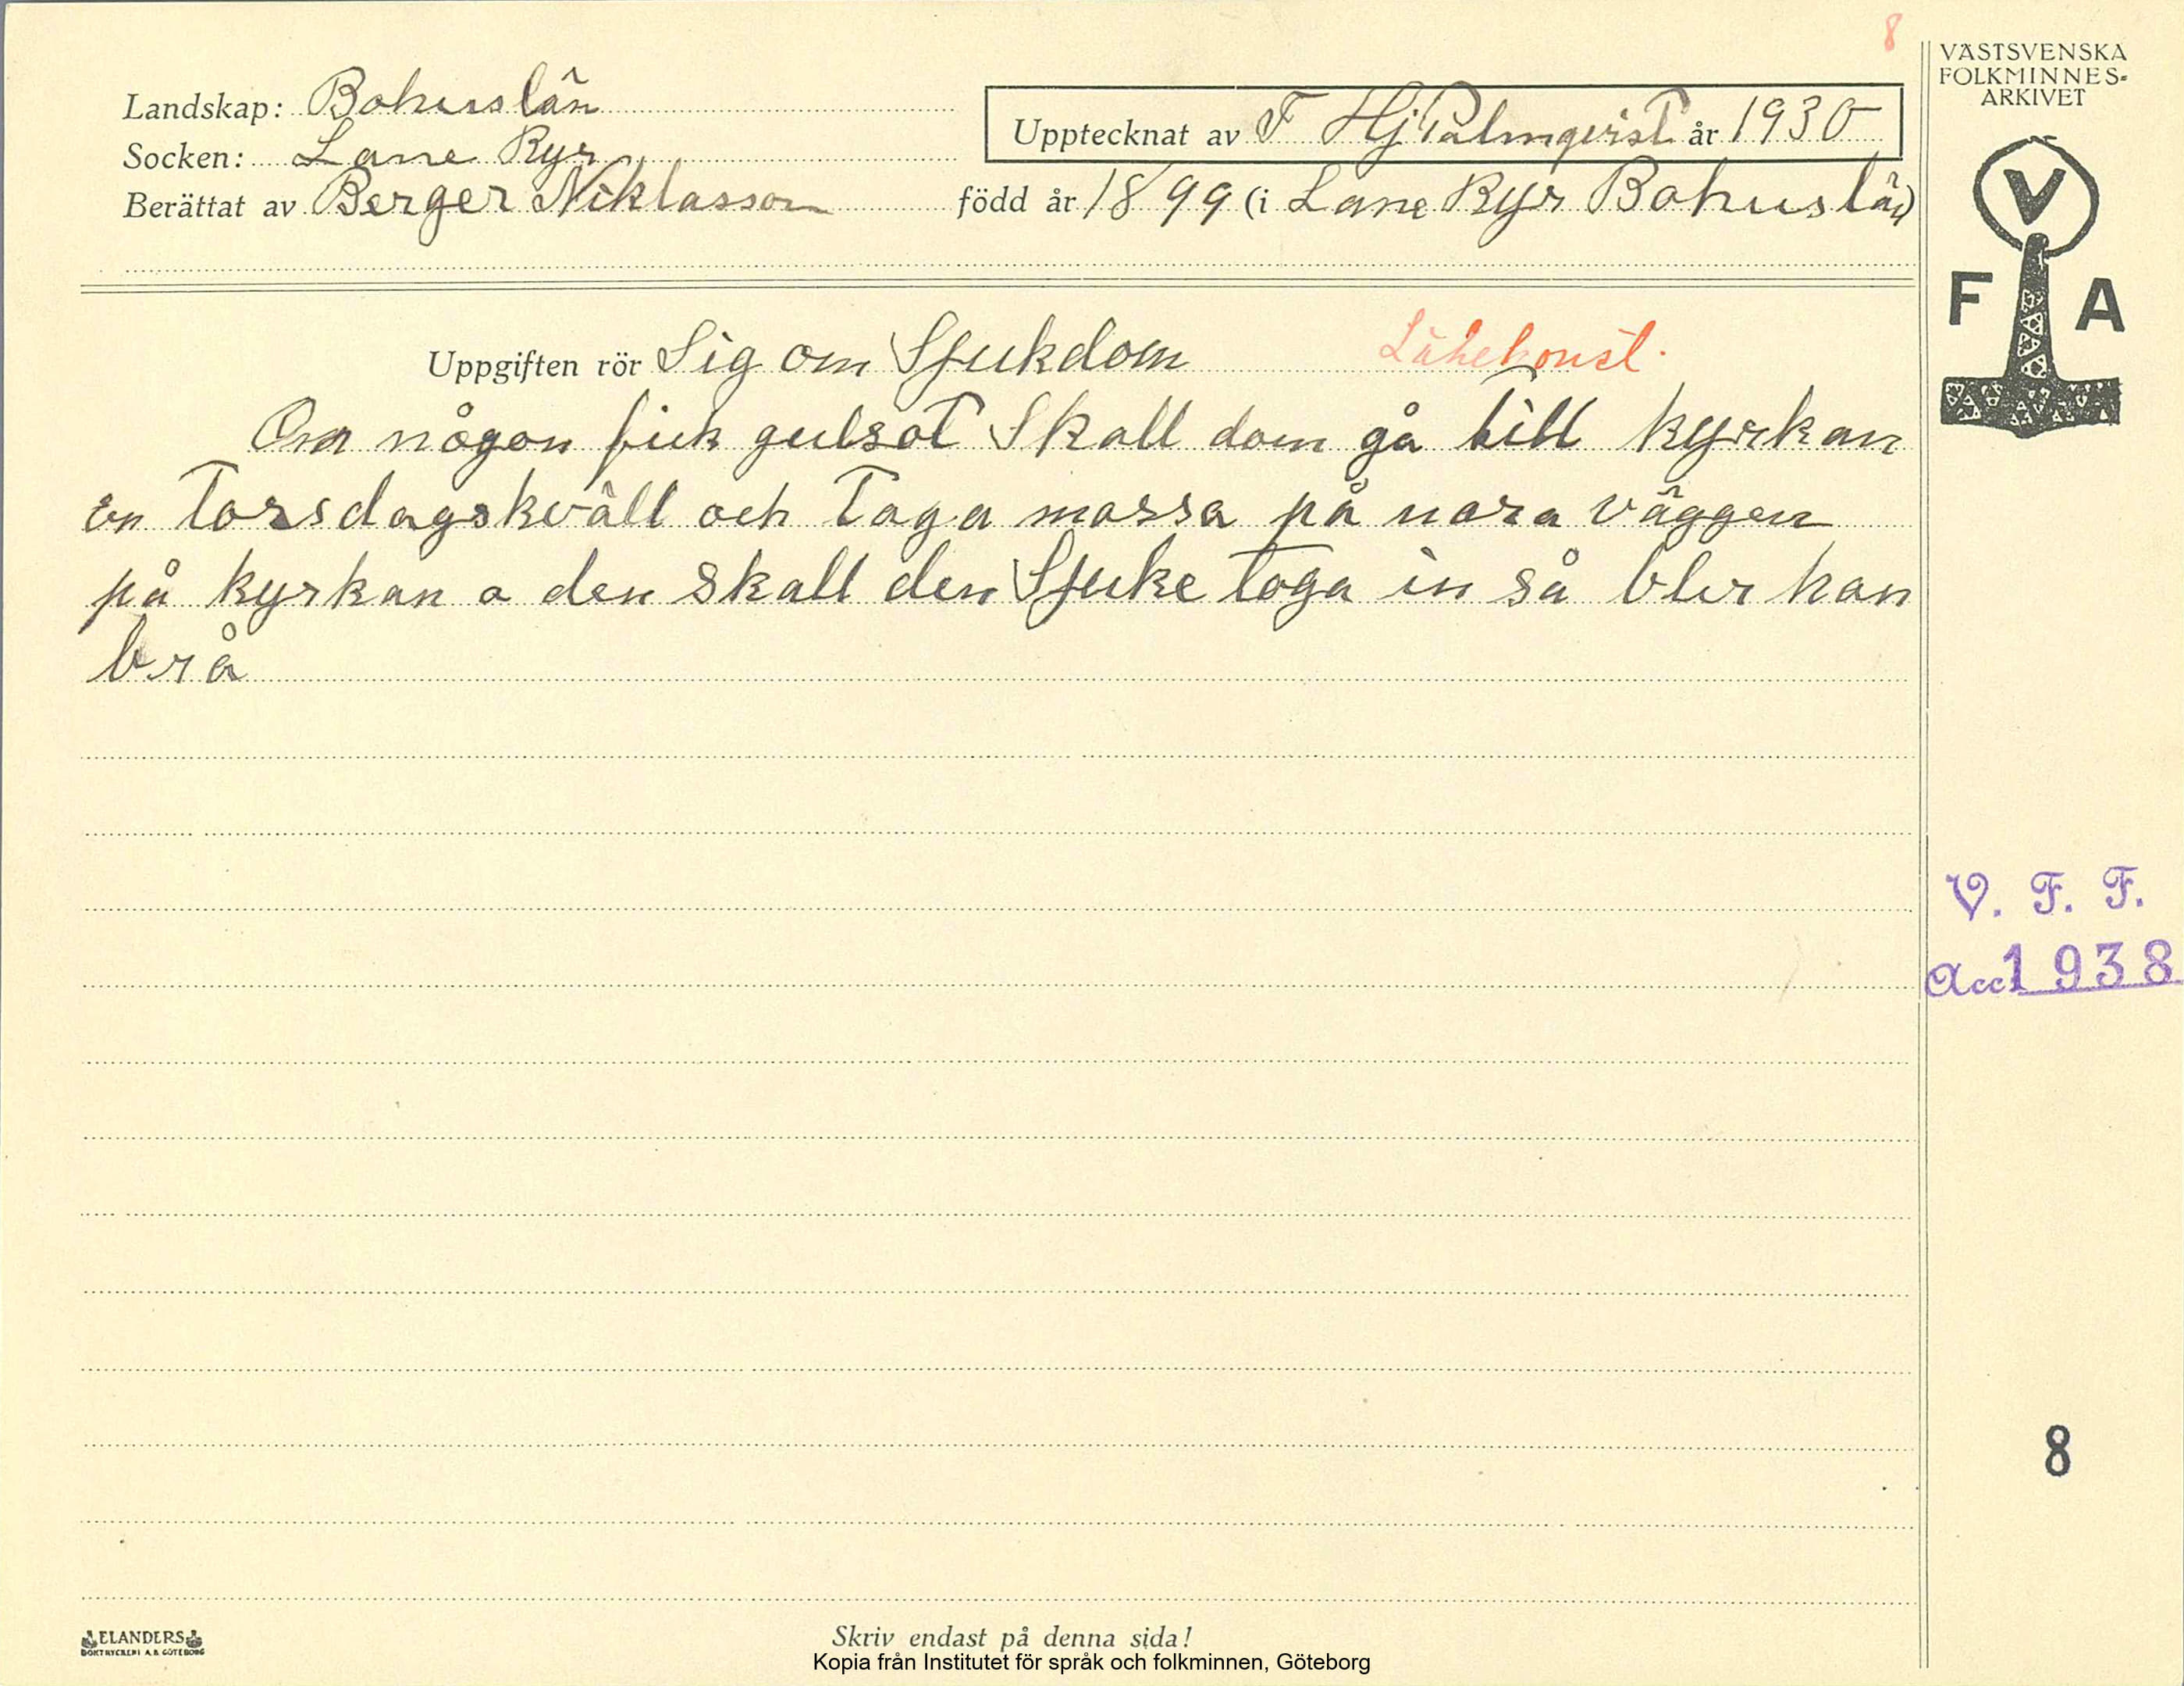 8
VÄSTSVENSKA
FOLKMINNES-
ARKIVET
Landskap: Bohuslän
Upptecknat av F Hj Palmqvist år 1930
Socken: Lane Ryr
Berättat av Berger Niklasson född år 1899 (i Lane Ryr Bohuslän)
V
F A
Uppgiften rör Sig om Sjukdom Läkekonst.
Om någon fick gulsot Skall dom gå till kyrkan
en Torsdagskväll och Taga mossa på nora väggen
på kyrkan o den Skall den Sjuke toga in så blir han
brå
V. F. F.
Acc 1938
8
ELANDERS
BOKTRYCKERI A.B. GÖTEBORG
Skriv endast på denna sida!
Kopia från Institutet för språk och folkminnen, Göteborg